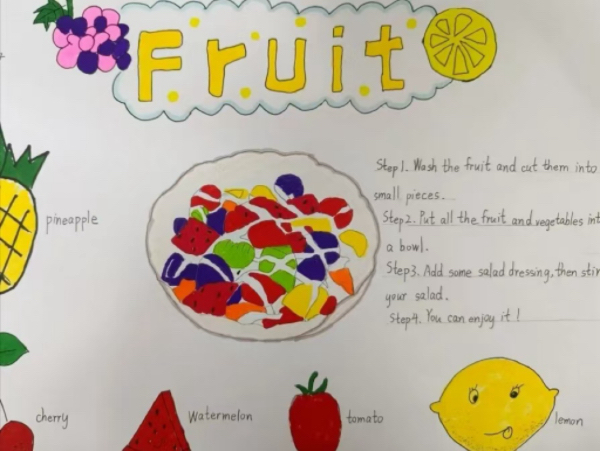 Fruit
Step1. Wash the fruit and cut them into
small pieces.
pineapple
Step2. Put all the fruit and vegetables int
a bowl.
Step3. Add some salad dressing, then stir
your salad.
Step4. You can enjoy it!
cherry
Watermelon
tomato
lemon